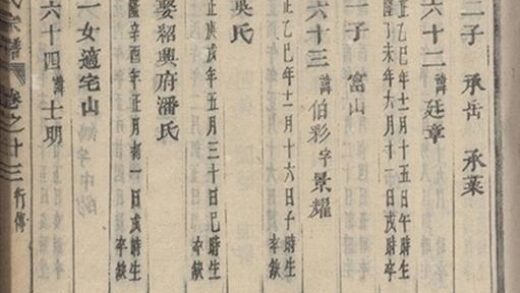 二子 承岳 承
六十二 諱廷章
正乙巳十二月十五日午時生
丁未年六月十日戌時卒
一子 富山
六十三 諱伯彩字景耀
正乙巳年十一月十六日子時生
卒缺
吳氏
正庚戌年五月三十日巳時生
卒缺
娶紹興府潘氏
隆辛酉年正月初一日戌時生
卒缺
一女適宅山
六十四 諱士明
氏宗譜 卷之十三 行傳